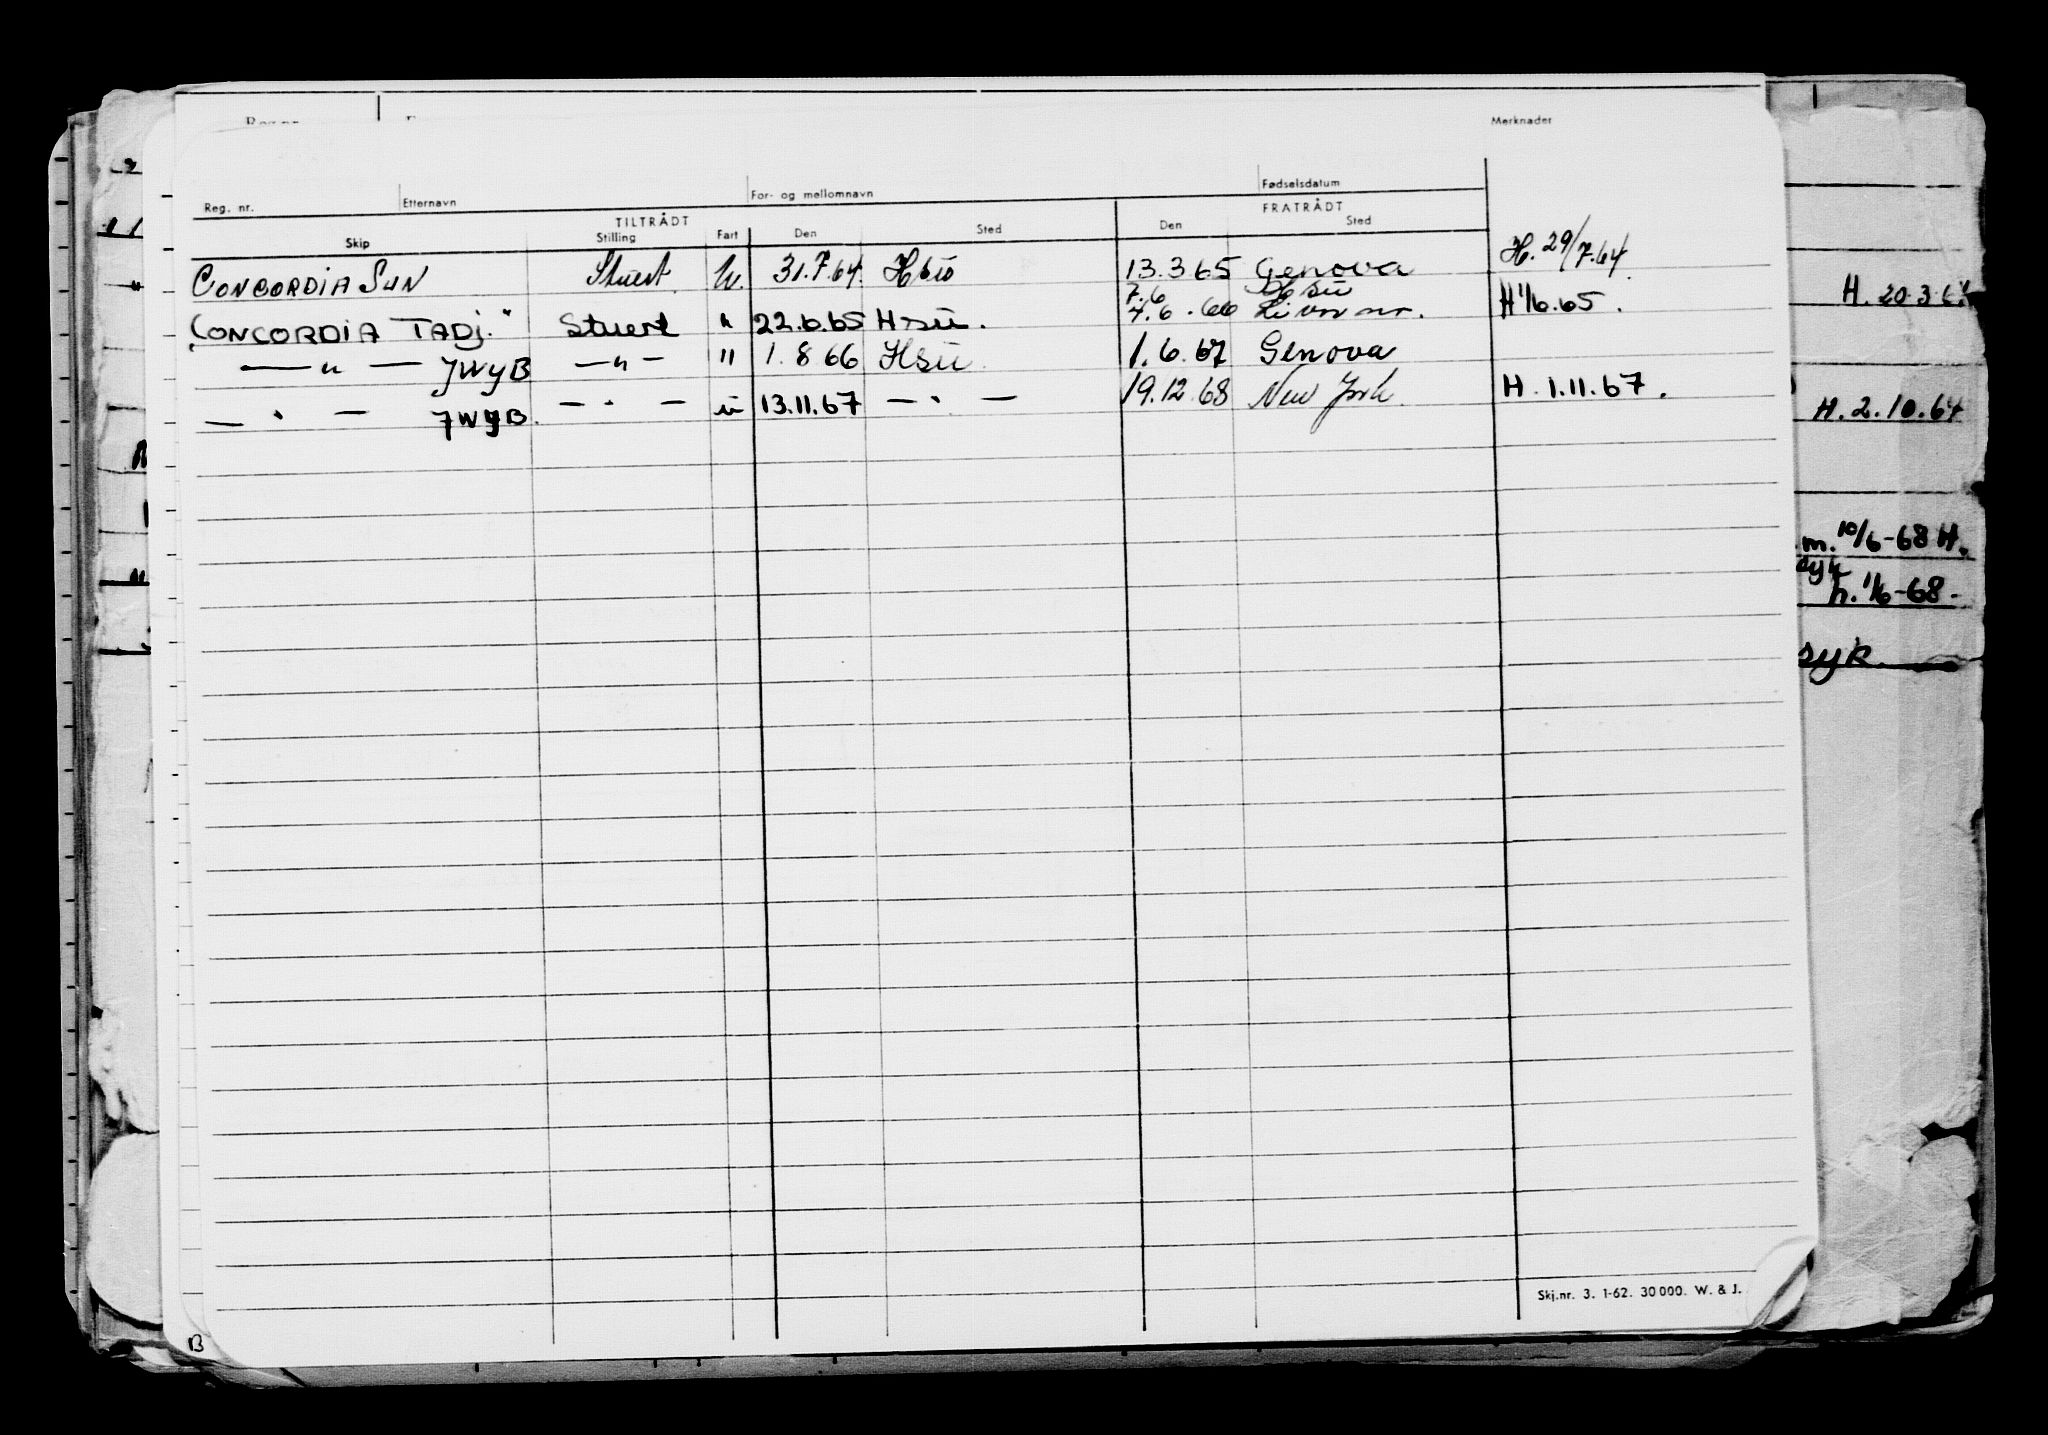 Merknader
Reg. nr. Etternavn For- og mellomnavn Fødselsdatum
TILTRÅDT FRATRÅDT
Skip Stilling Fart Den Sted Den Sted
CONCORDIA SUN Stuert U. 31.7.64. Hsü 13.3.65 Genova H. 29/7.64.
7.6 Hsü
CONCORDIA TADJ. Stuert " 22.6.65 Hsü. 7.6.66 H 1/6.65.
— " — JWYB — " — " 1.8 66 Hsü. 1.6.67 Genova
— " — JWYB. — " — " 13.11.67 — " — 19.12.68 New York. H. 1.11.67.
H. 2.10.64
m. 10/6-68 H.
h. 1/6-68.
syk.
Skj.nr. 3. 1-62. 30 000. W. & J.
B